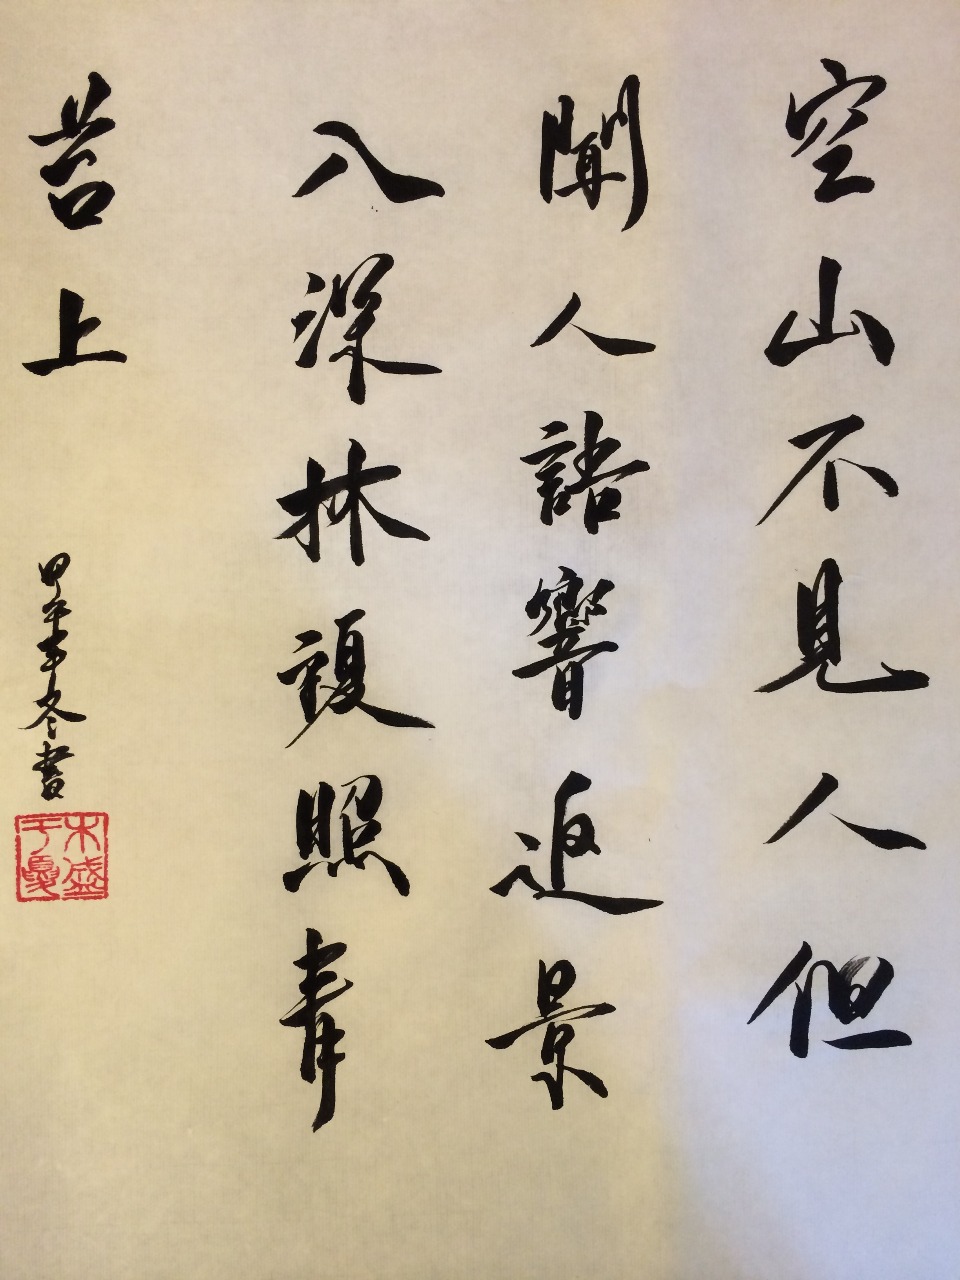 空山不見人但
聞人語響返景
入深林復照青
苔上
甲午年冬書